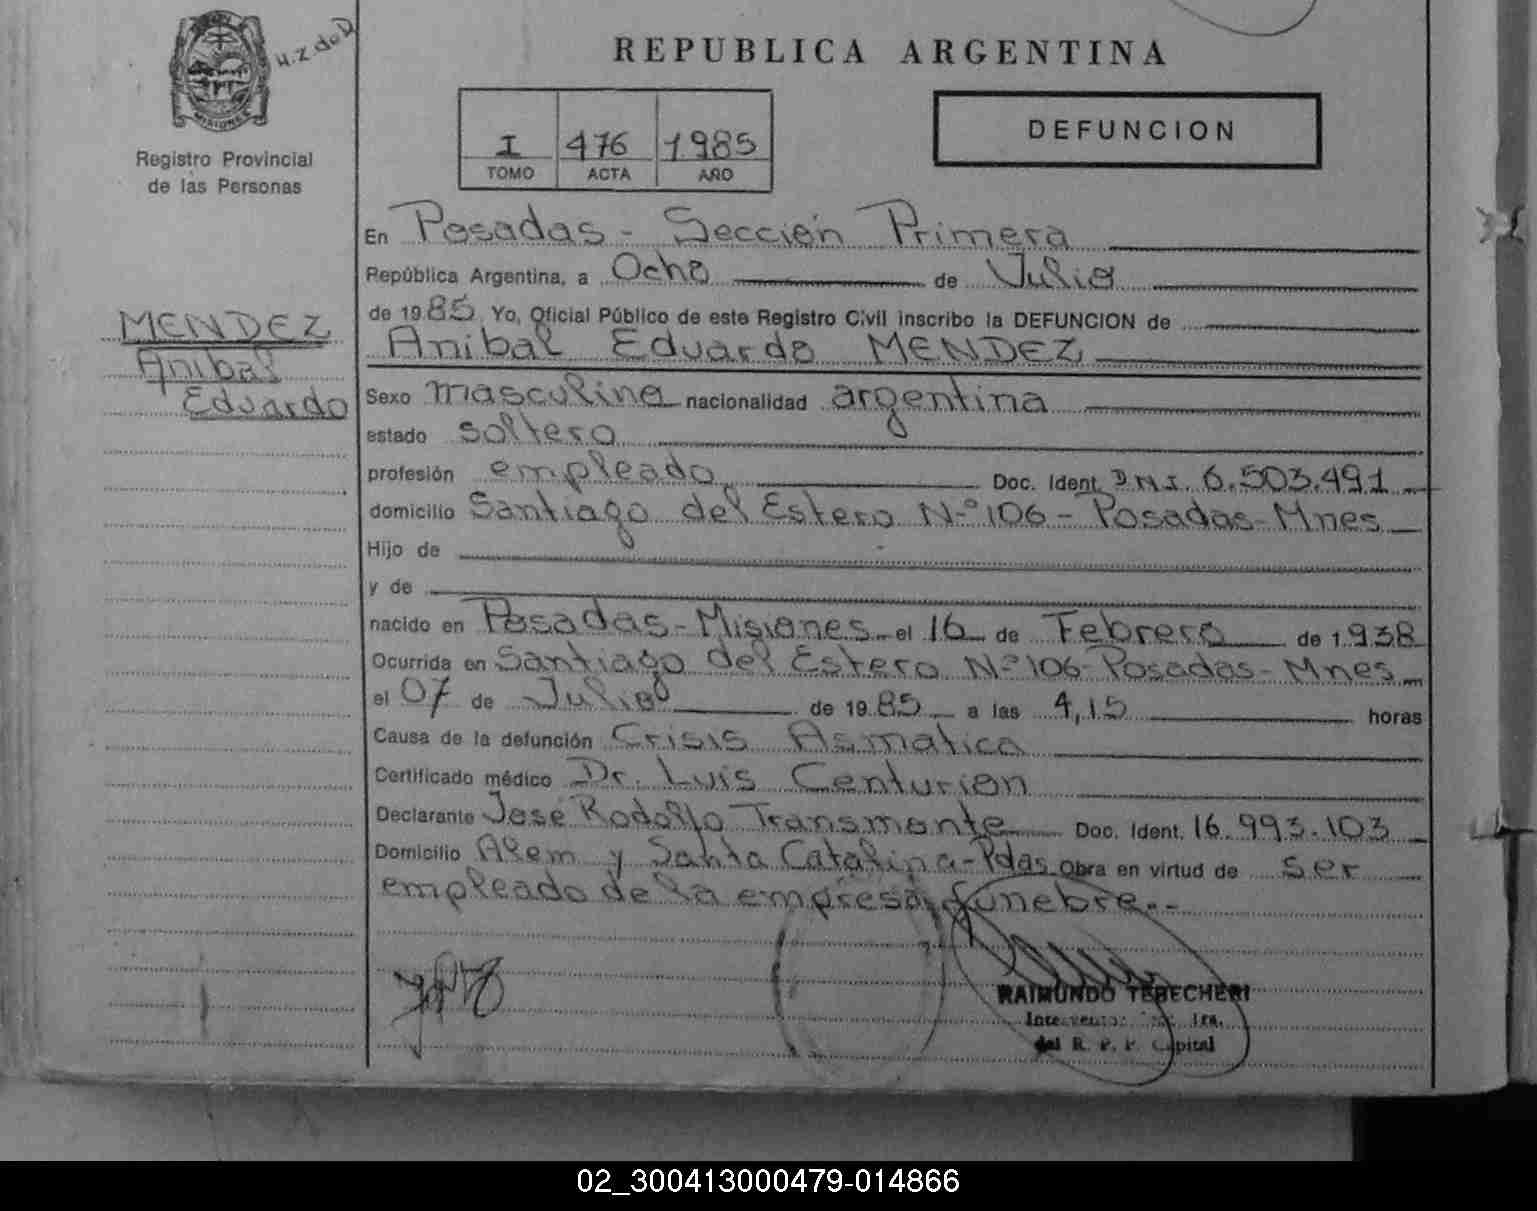 MISIONES
H.Z. de D
Registro Provincial
de las Personas
REPUBLICA ARGENTINA
I 476 1985
TOMO ACTA AÑO
DEFUNCION
En Posadas - Sección Primera
República Argentina, a Ocho de Julio
de 1985 Yo, Oficial Público de este Registro Civil inscribo la DEFUNCION de
Anibal Eduardo MENDEZ
MENDEZ
Anibal
Eduardo
Sexo masculino nacionalidad argentina
estado soltero
profesión empleado Doc. Ident. D.N.I. 6.503.491
domicilio Santiago del Estero N-º 106 - Posadas - Mnes
Hijo de
y de
nacido en Posadas - Misiones el 16 de Febrero de 1.938
Ocurrida en Santiago del Estero N-º 106 - Posadas - Mnes
el 07 de Julio de 1985 a las 4,15 horas
Causa de la defunción Crisis Asmatica
Certificado médico Dr. Luis Centurion
Declarante José Rodolfo Transmonte Doc. Ident. 16.993.103
Domicilio Alem y Santa Catalina - Pdas Obra en virtud de ser
empleado de la empresa funebre.--
RAIMUNDO TEBECHERI
del R. P. P. Capital
02_300413000479-014866